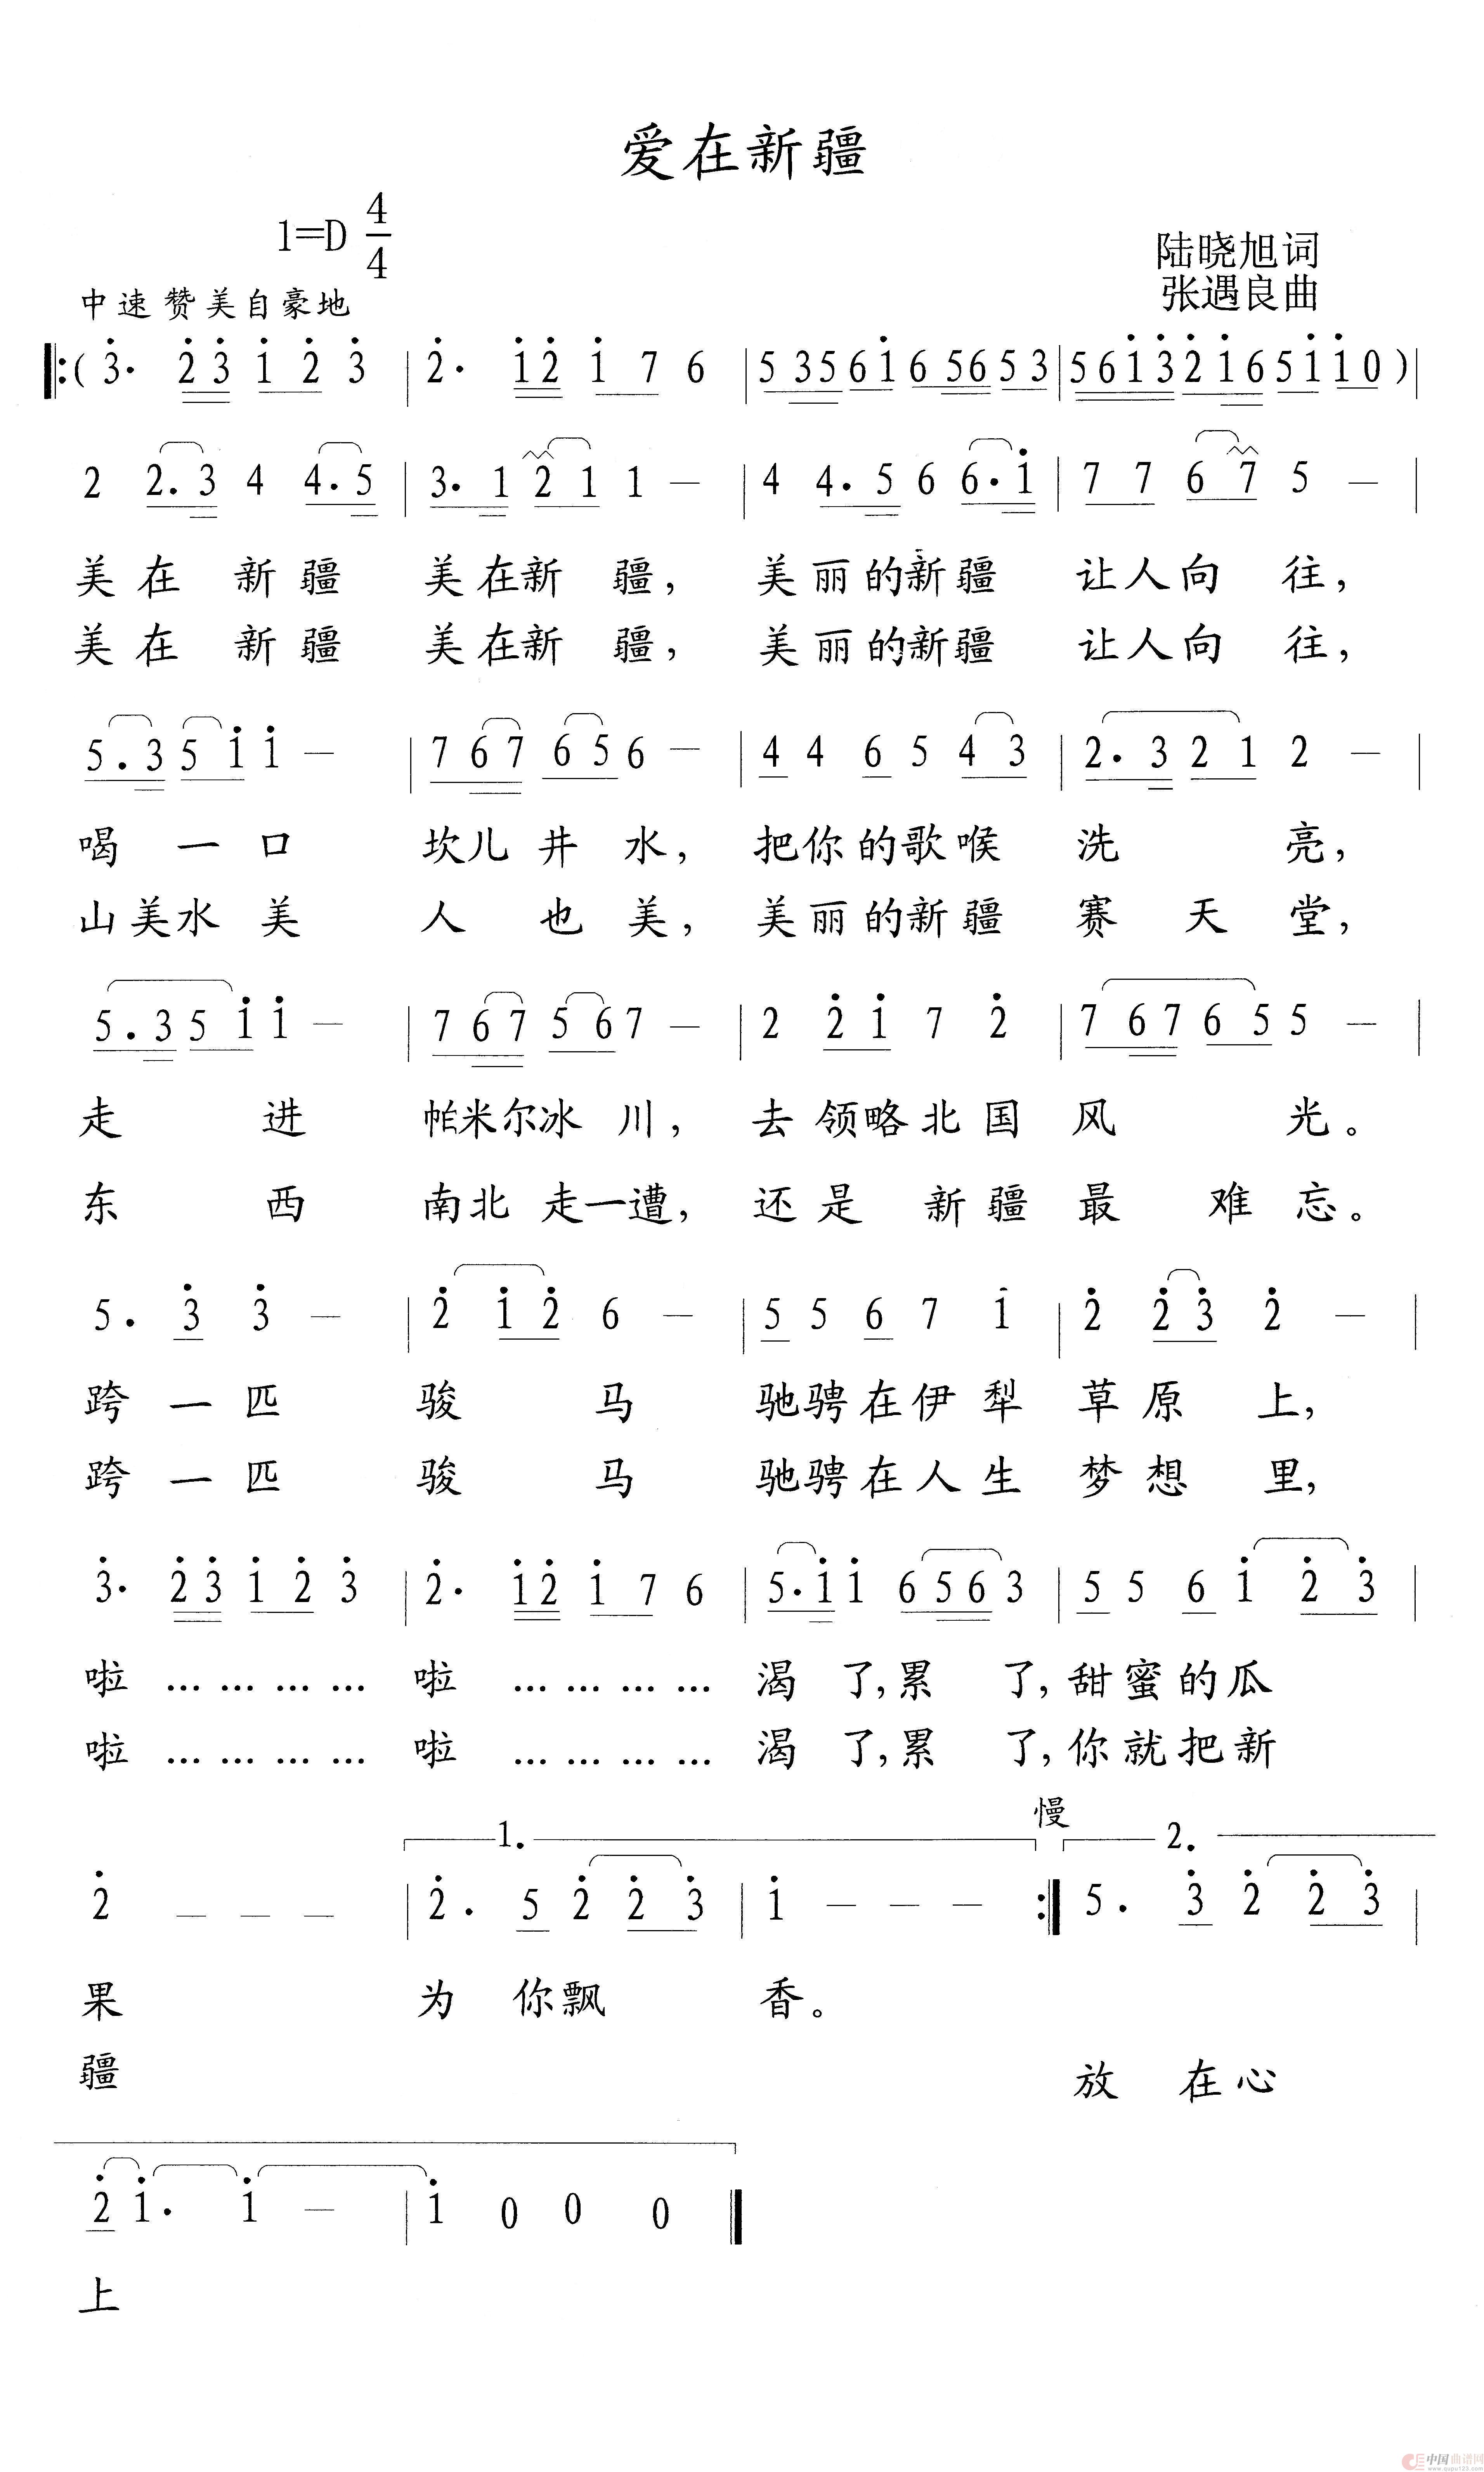 爱在新疆
1=D 4/4
陆晓旭词
中速 赞美自豪地
张遇良曲
𝄆( 3̇· 2̇3̇ 1̇ 2̇ 3̇ | 2̇· 1̇2̇ 1̇ 7 6 | 5 35 61̇ 6 56 53 | 561̇3̇ 2̇1̇6 51̇ 1̇0 ) |
2 2.3 4 4.5 | 3. 1 2 1 1 — | 4 4.5 6 6.1̇ | 7 7 6 7 5 — |
美在 新疆 美在新 疆, 美丽的新疆 让人向 往,
美在 新疆 美在新 疆, 美丽的新疆 让人向 往,
5.3 51̇ 1̇ — | 7 67 65 6 — | 4 4 6 5 4 3 | 2.3 21 2 — |
喝 一 口 坎儿 井 水, 把你的歌喉 洗 亮,
山美水 美 人 也 美, 美丽的新疆 赛 天 堂,
5.3 51̇ 1̇ — | 7 67 56 7 — | 2 2̇1̇ 7 2̇ | 7 67 6 5 5 — |
走 进 帕米尔冰 川, 去领略北国 风 光。
东 西 南北 走一遭, 还是 新疆 最 难忘。
5. 3̇ 3̇ — | 2̇ 1̇2̇ 6 — | 5 5 6 7 1̇ | 2̇ 2̇3̇ 2̇ — |
跨一匹 骏 马 驰骋在伊犁 草原 上,
跨一匹 骏 马 驰骋在人生 梦想 里,
3̇· 2̇3̇ 1̇ 2̇ 3̇ | 2̇· 1̇2̇ 1̇ 7 6 | 5·1̇ 1̇ 6 56 3 | 5 5 6 1̇ 2̇ 3̇ |
啦 ………… 啦 ………… 渴 了,累 了,甜蜜的瓜
啦 ………… 啦 ………… 渴 了,累 了,你就把新
慢
1. 2.
2̇ — — — | 2̇. 5 2̇ 2̇ 3̇ | 1̇ — — — 𝄇 5. 3̇ 2̇ 2̇ 3̇ |
果 为 你飘 香。
疆 放 在心
2̇ 1̇. 1̇ — | 1̇ 0 0 0 ‖
上
中国曲谱网
www.qupu123.com